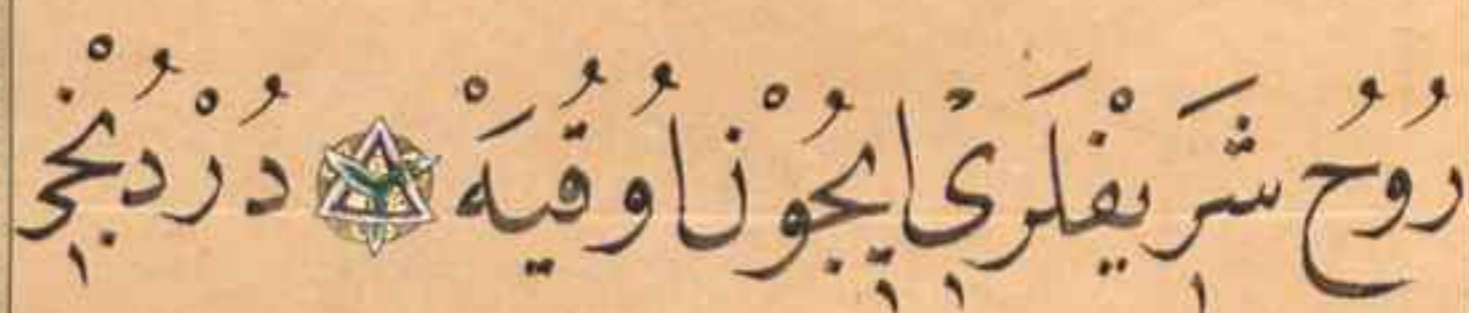 رُوُحِ شَرِيْفْلَرِىْ اِيچُوْنْ اُوقُيَهْ دُرْدُنْجِ